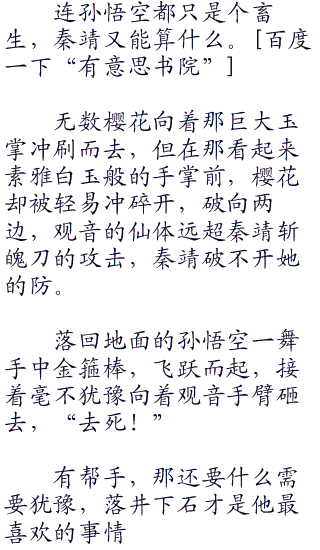 连孙悟空都只是个畜
生，秦靖又能算什么。[百度
一下“有意思书院”]
无数樱花向着那巨大玉
掌冲刷而去，但在那看起来
素雅白玉般的手掌前，樱花
却被轻易冲碎开，破向两
边，观音的仙体远超秦靖斩
魄刀的攻击，秦靖破不开她
的防。
落回地面的孙悟空一舞
手中金箍棒，飞跃而起，接
着毫不犹豫向着观音手臂砸
去，“去死！”
有帮手，那还要什么需
要犹豫，落井下石才是他最
喜欢的事情